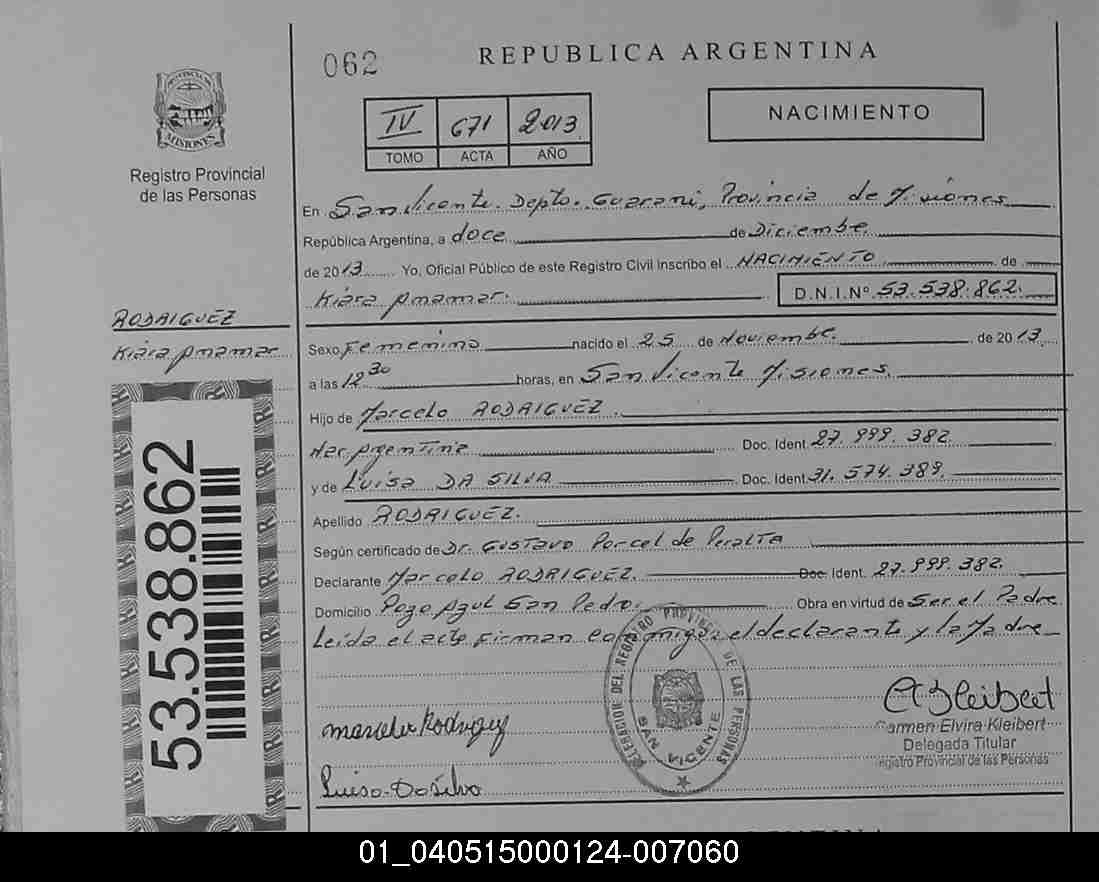 062
REPUBLICA ARGENTINA
PROVINCIA DE
MISIONES
Registro Provincial
de las Personas
IV 671 2013
TOMO ACTA AÑO
NACIMIENTO
En San Vicente. Depto. Guarani, Provincia de Misiones
República Argentina, a doce de Diciembre
de 2013 Yo, Oficial Público de este Registro Civil Inscribo el NACIMIENTO de
Kiara Anamar. D.N.I.Nº 53.538.862.
RODRIGUEZ
Kiara Anamar
Sexo Femenino nacido el 25 de Noviembre. de 2013
a las 12 30 horas, en San Vicente Misiones.
Hijo de Marcelo RODRIGUEZ
Nac. Argentina Doc. Ident. 27.999.382.
y de Luisa DA SILVA Doc. Ident. 31.574.389.
Apellido RODRIGUEZ.
Según certificado de Dr. Gustavo Porcel de Peralta
Declarante Marcelo RODRIGUEZ. Doc. Ident. 27.999.382.
Domicilio Pozo Azul San Pedro. Obra en virtud de Ser el Padre
Leida el acta firman conmigo: el declarante y la Madre
53.538.862
DELEGACION DEL REGISTRO PROVINCIAL DE LAS PERSONAS
SAN VICENTE
Marcelo Rodriguez
Luisa Da Silva
Carmen Elvira Kleibert
Delegada Titular
Registro Provincial de las Personas
01_040515000124-007060